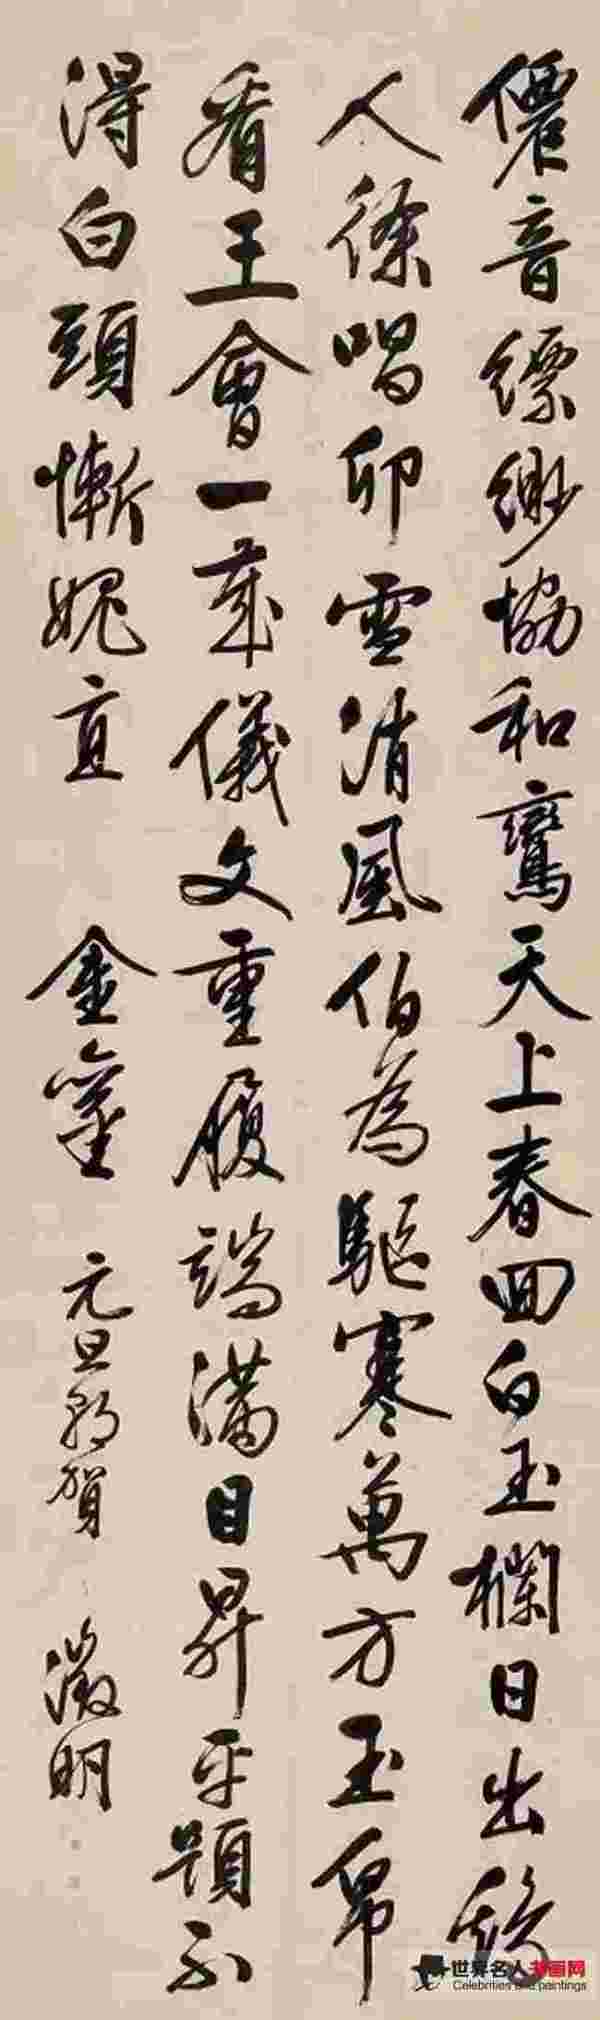 僊音縹緲協和鸞天上春回白玉欄日出雞
人徐唱卯雪消風伯為驅寒萬方玉帛
看王會一歲儀文重履端滿目昇平題不
得白頭慚愧直 金鑾 元旦朝賀 徵明
世界名人书画网
Celebrities and paintings